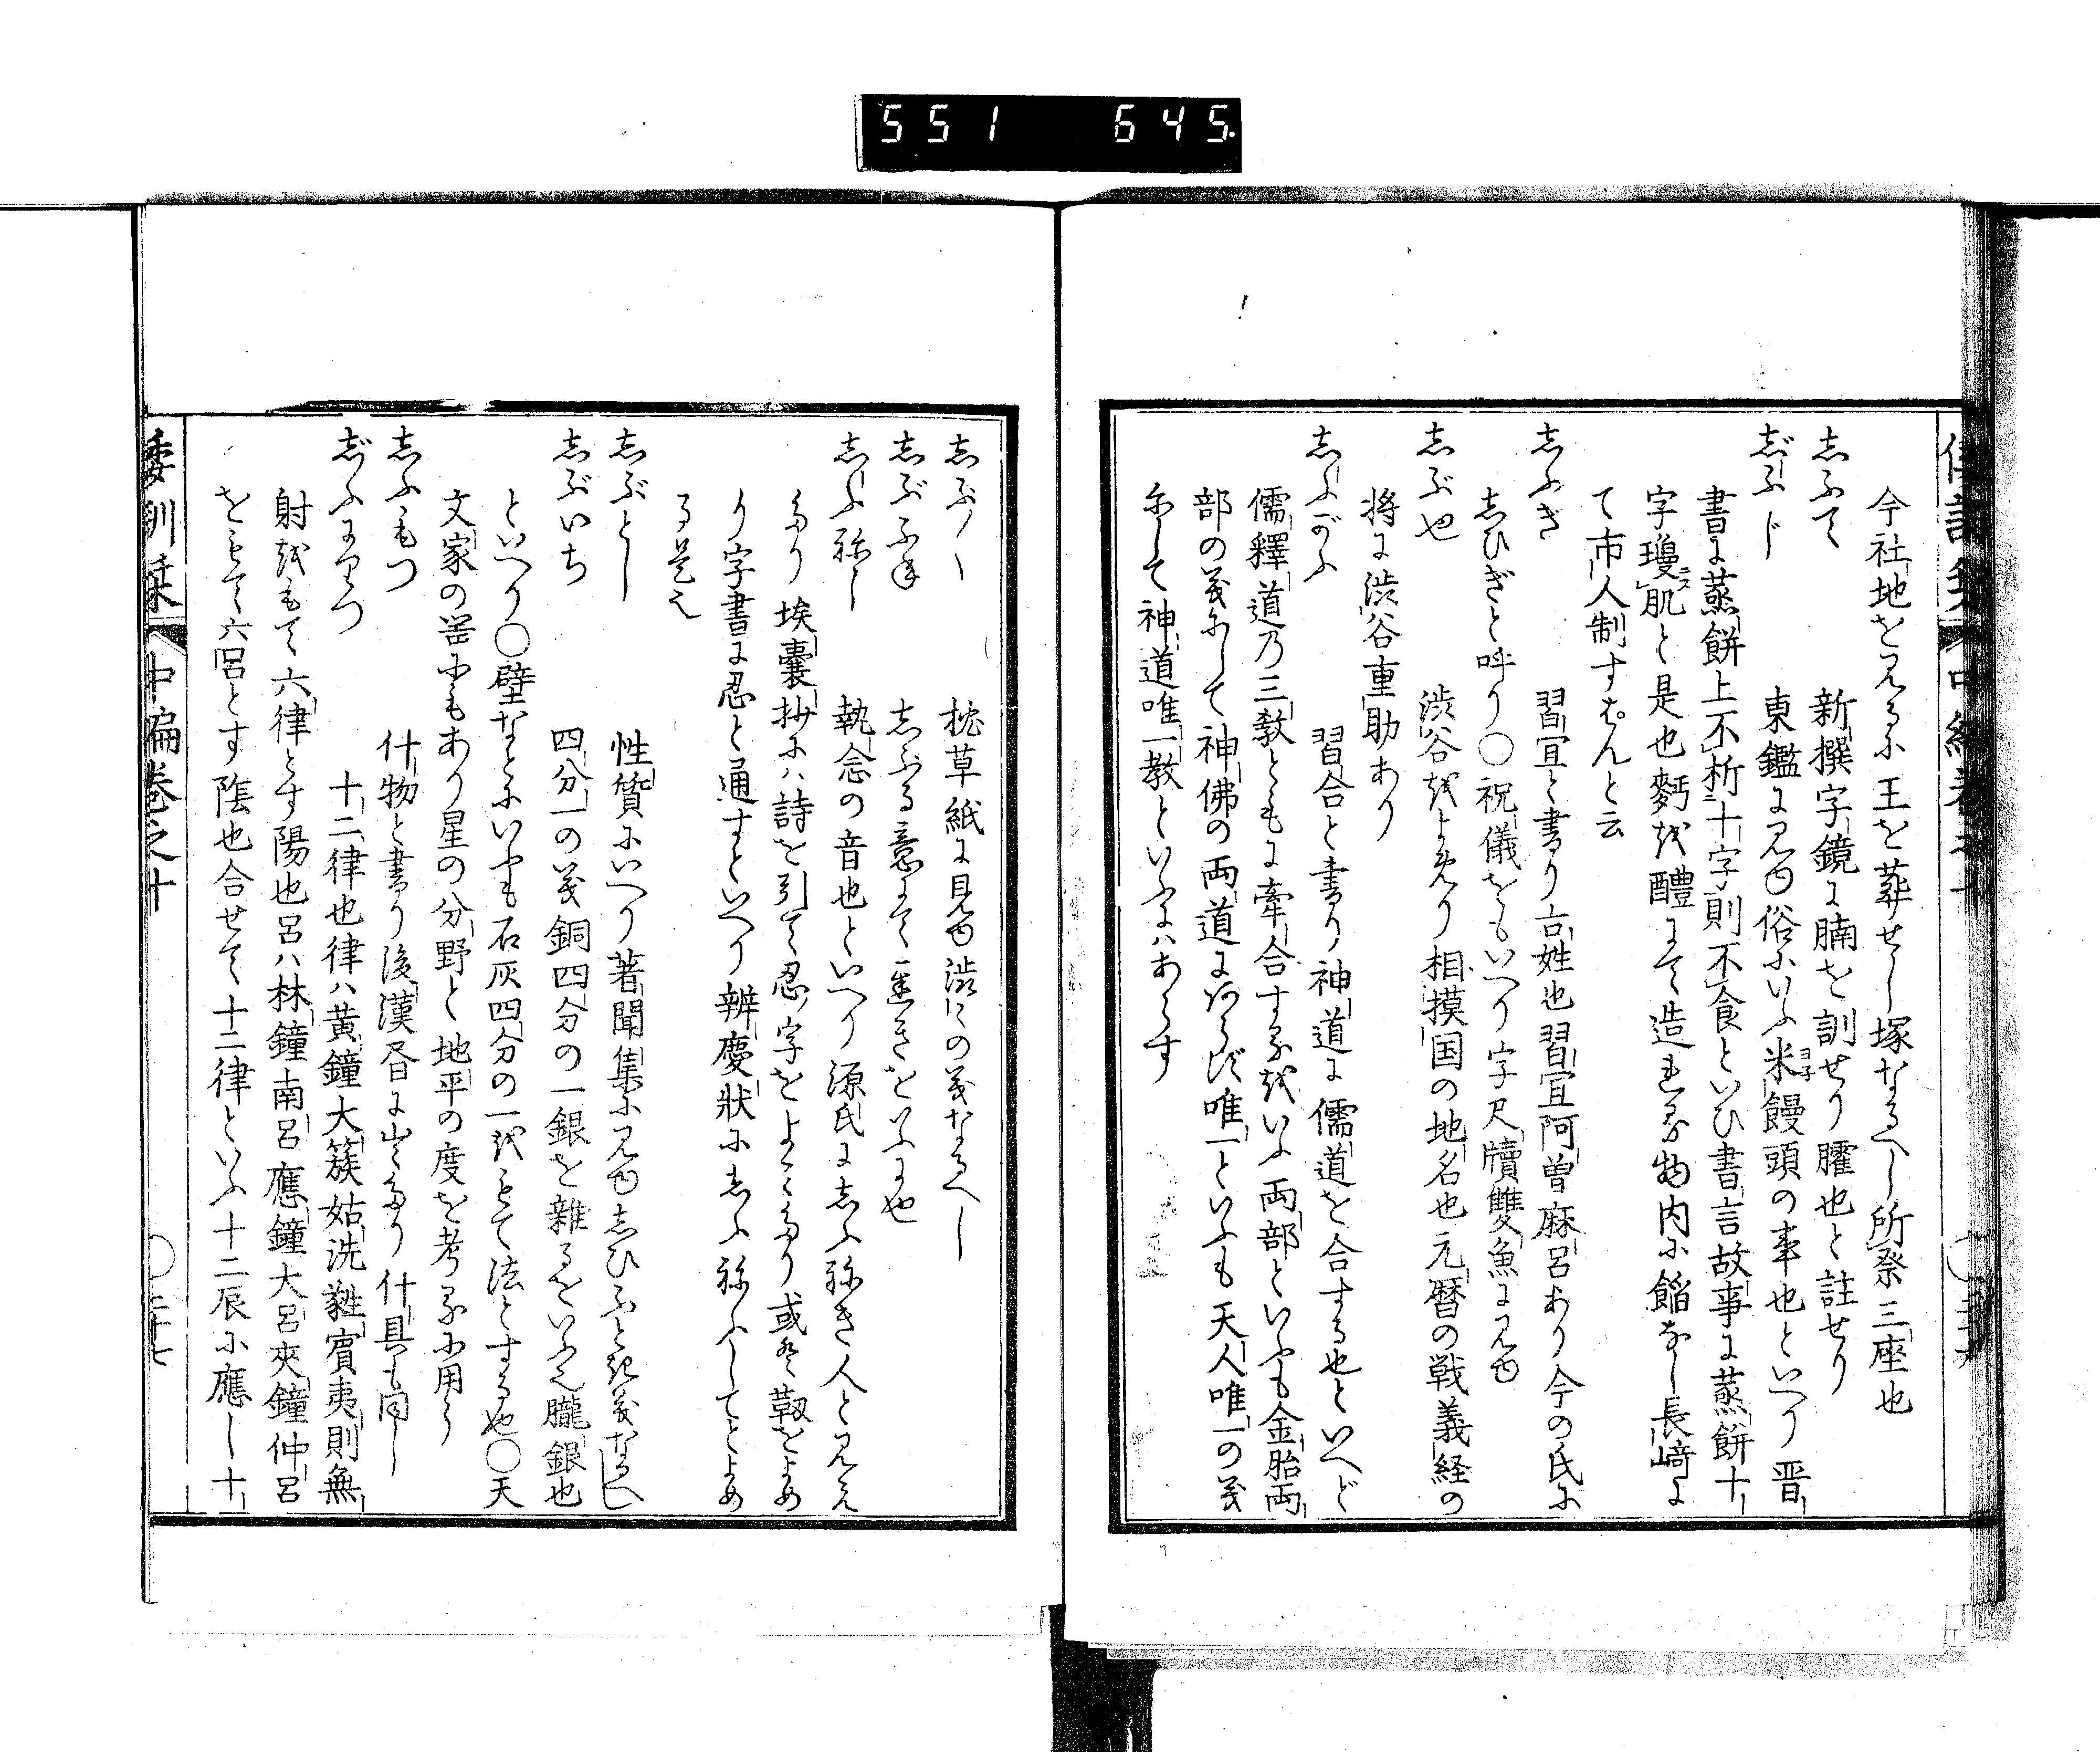 551 645.
今社地を見るに王を葬せし塚なるへし所祭三座也
志ふて 新撰字鏡に腩を訓せり臛也と註せり
志゛ふじ 東鑑に見ゆ俗にいふ米饅頭の事也といへり晋
書に蒸餅上不柝十字則不食といひ書言故事に蒸餅十
字瓊肌と是也麪を醴にて造れる物内に餡なし長﨑に
て市人制すはんと云
志ふき 習宜と書り古姓也習宜阿曽麻呂あり今の氏に
志ひぎと呼り〇祝儀をもいへり字尺牘雙魚に見ゆ
志ぶや 渋谷をよめり相摸国の地名也元暦の戦義経の
将に渋谷重助あり
志ふがふ 習合と書り神道に儒道を合する也といへど
儒釋道乃三教ともに牽合するをいふ両部といふも金胎両
部の義にして神佛の両道にわたらず唯一といふも天人唯一の義
にして神道唯一教といふにハあらす
志ぶ〱 枕草紙に見ゆ渋々の義なるへし
志ぶふね 志ぶる意にて
志ふ祢し 執念の音也といへり源氏に志ふ祢き人と見え
たり 埃嚢抄にハ詩を引て忍字をよミたり或ハ靱をよめ
り字書に忍と通すといへり辨慶状に志ふ祢ふしてとよめ
る是也
志ぶとし 性質にいへり著聞集に見ゆ志ひふとき義なるへし
志ぶいち 四分一の義銅四分の一銀を雜るをいふ也朧銀也
といへり〇壁なとにいふも石灰四分の一をもて法とする也〇天
文家の器にもあり星の分野と地平の度を考るに用う
志ふもつ 什物と書り後漢書に出たり什具も同し
志゛ふにりつ 十二律也律ハ黄鐘大簇姑洗蕤賓夷則無
射をもて六律とす陽也呂ハ林鐘南呂應鐘大呂夾鐘仲呂
をもて六呂とす陰也合せて十二律といふ十二辰に應し十
倭訓栞 中編巻之十 〇 二十七